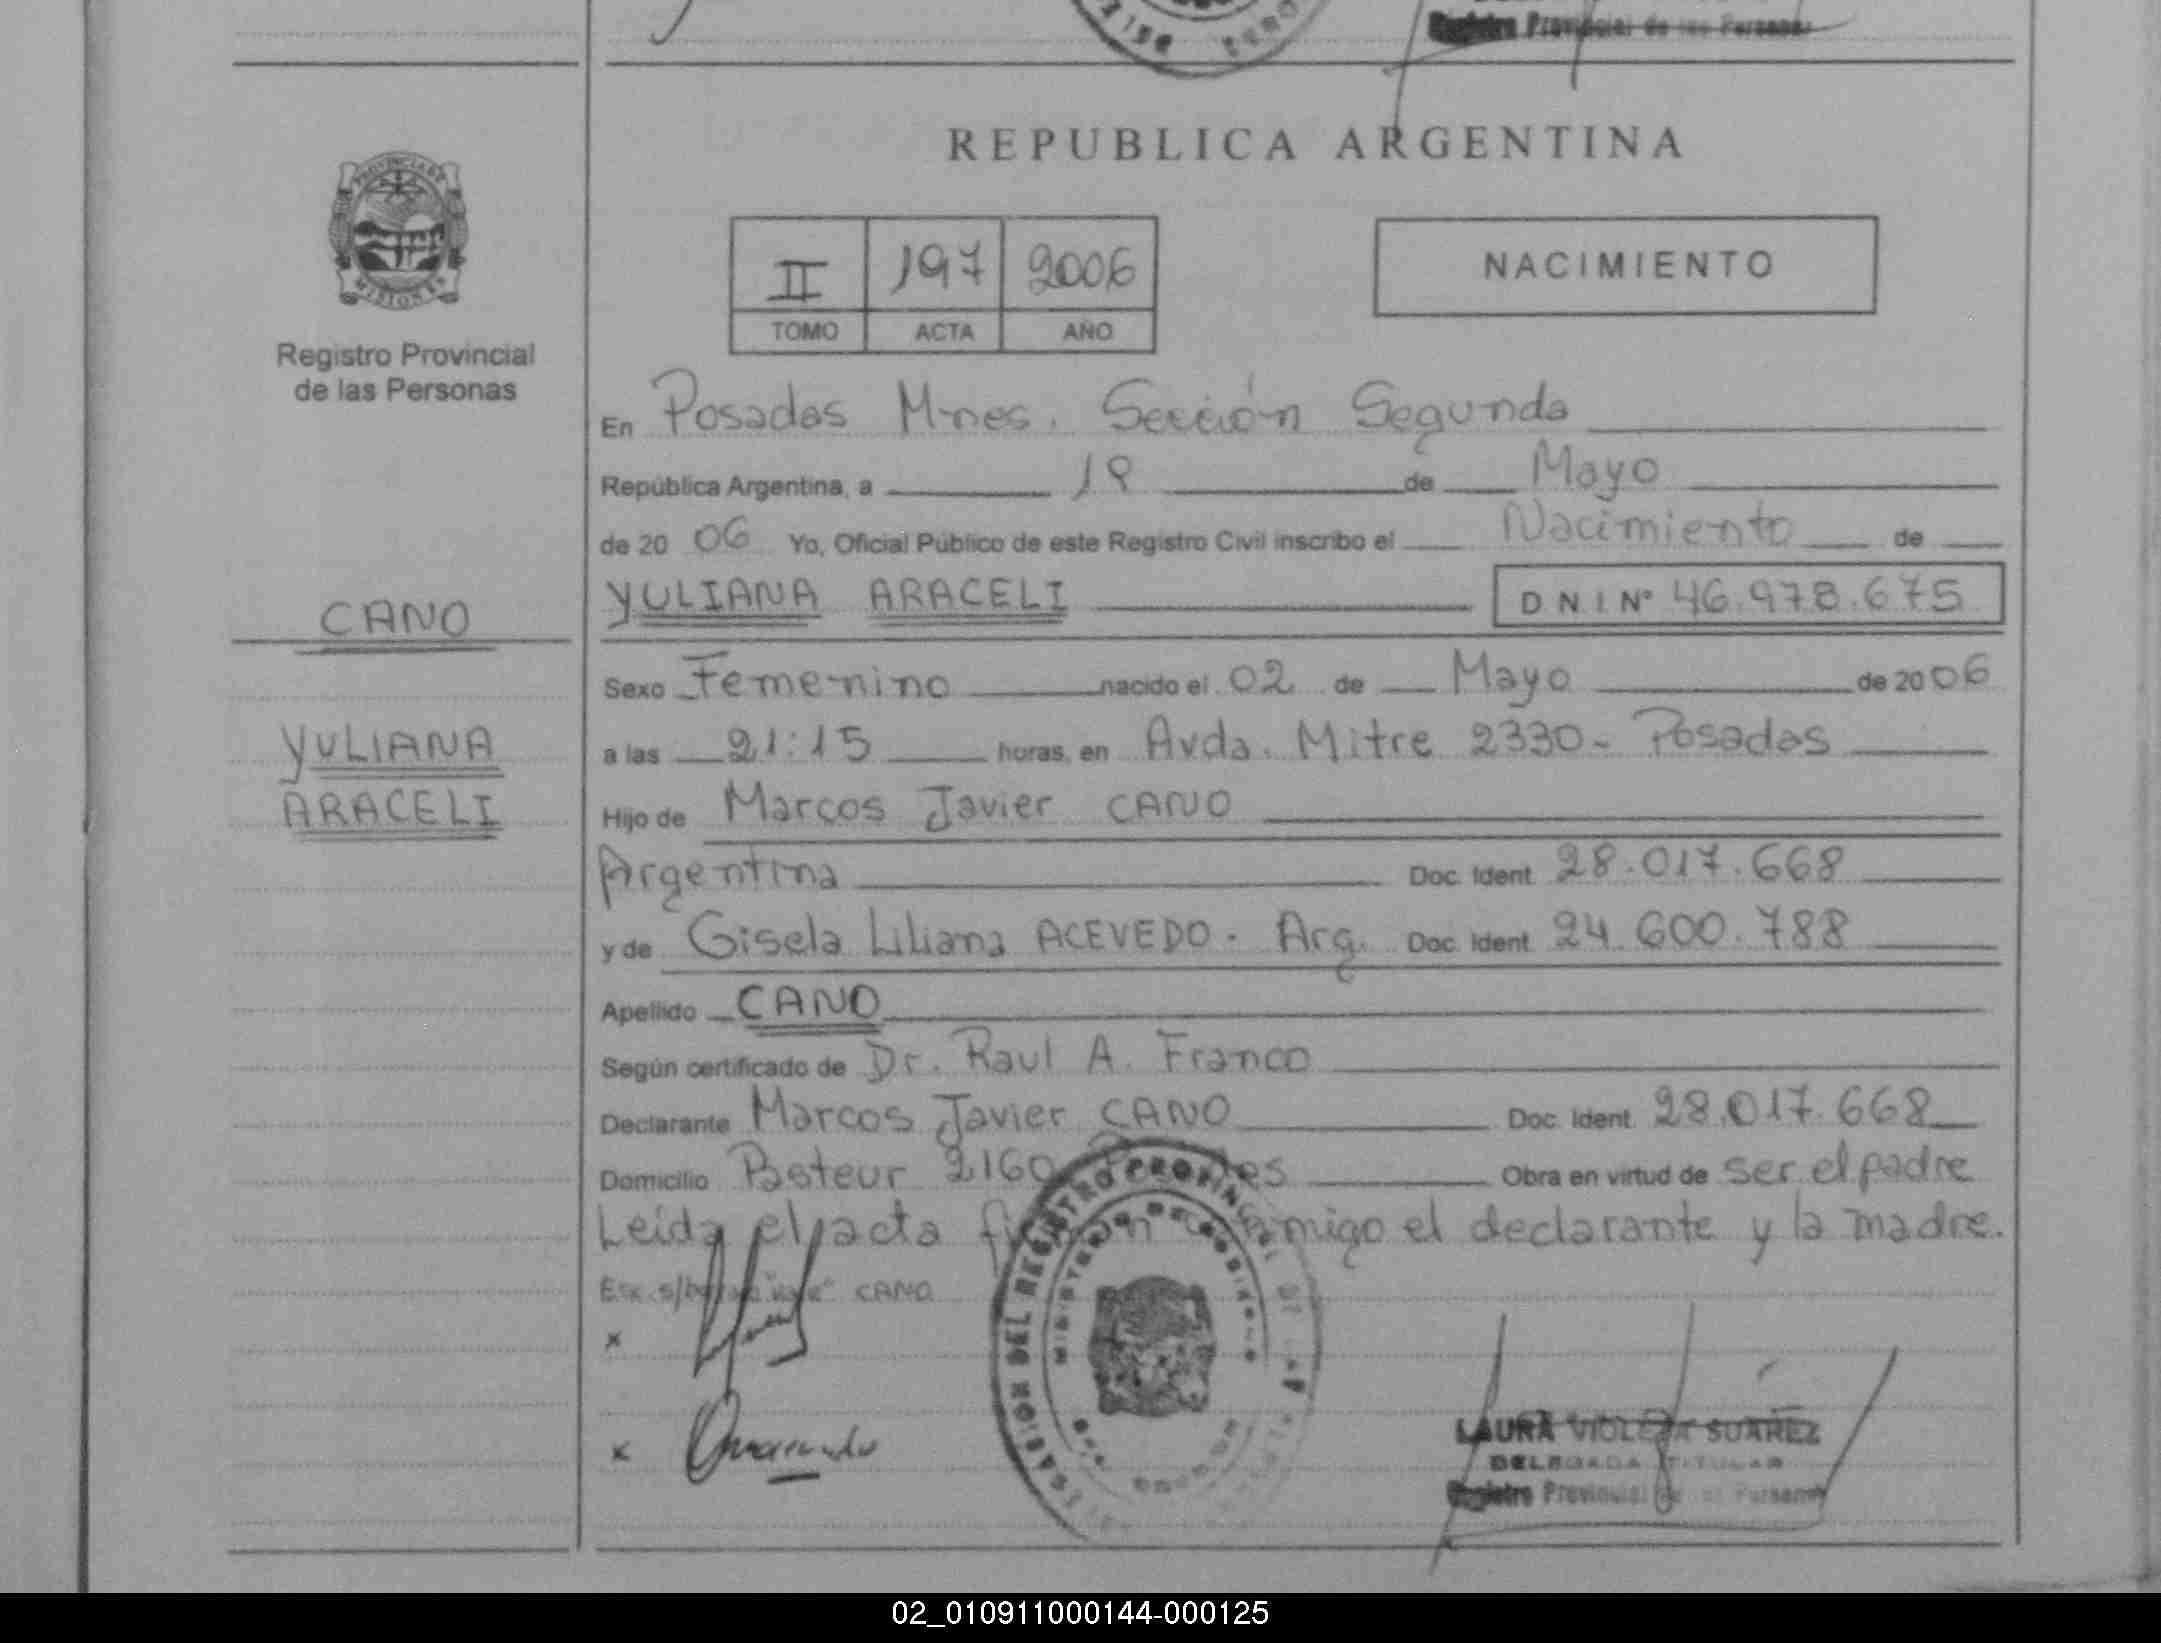 Registro Provincial de las Personas
REPUBLICA ARGENTINA
PROVINCIA DE
MISIONES
Registro Provincial
de las Personas
II 197 2006
TOMO ACTA AÑO
NACIMIENTO
En Posadas Mnes. Sección Segunda
República Argentina, a 19 de Mayo
de 20 06 Yo, Oficial Público de este Registro Civil inscribo el Nacimiento de
YULIANA ARACELI D N I Nº 46.978.675
CANO
YULIANA
ARACELI
Sexo Femenino nacido el 02 de Mayo de 20 06
a las 21:15 horas, en Avda. Mitre 2330 - Posadas
Hijo de Marcos Javier CANO
Argentina Doc. Ident. 28.017.668
y de Gisela Liliana ACEVEDO - Arg. Doc. Ident. 24.600.788
Apellido CANO
Según certificado de Dr. Raul A. Franco
Declarante Marcos Javier CANO Doc. Ident. 28.017.668
Domicilio Pasteur 2160 Obra en virtud de ser el padre
Leida el acta el declarante y la madre.
CANO
x
x
DEL REGISTRO PROVINCIAL DE LAS
LAURA VIOLETA SUAREZ
DELEGADA TITULAR
Registro Provincial de las Personas
02_010911000144-000125